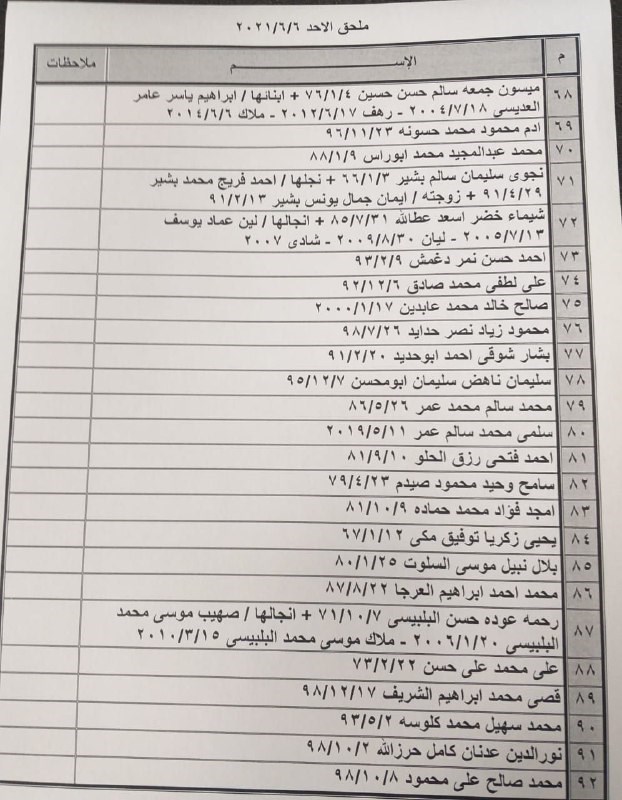 ملحق الاحد ٢٠٢١/٦/٦
م الإســـــــم ملاحظات
٦٨ ميسون جمعه سالم حسن حسين ٧٦/١/٤ + ابنائها / ابراهيم ياسر عامر
العديسى ٢٠٠٤/٧/١٨ - رهف ٢٠١٢/٦/١٧ - ملاك ٢٠١٤/٦/٦
٦٩ ادم محمود محمد حسونه ٩٦/١١/٢٣
٧٠ محمد عبدالمجيد محمد ابوراس ٨٨/١/٩
٧١ نجوى سليمان سالم بشير ٦٦/١/٣ + نجلها / احمد فريج محمد بشير
٩١/٤/٢٩ + زوجته / ايمان جمال يونس بشير ٩١/٢/١٣
٧٢ شيماء خضر اسعد عطالله ٨٥/٧/٣١ + انجالها / لين عماد يوسف
٢٠٠٥/٧/١٣ - ليان ٢٠٠٩/٨/٣٠ - شادى ٢٠٠٧
٧٣ احمد حسن نمر دغمش ٩٣/٢/٩
٧٤ على لطفى محمد صادق ٩٢/١٢/٦
٧٥ صالح خالد محمد عابدين ٢٠٠٠/١/١٧
٧٦ محمود زياد نصر حدايد ٩٨/٧/٢٦
٧٧ بشار شوقى احمد ابوحديد ٩١/٢/٢٠
٧٨ سليمان ناهض سليمان ابومحسن ٩٥/١٢/٧
٧٩ محمد سالم محمد عمر ٨٦/٥/٢٦
٨٠ سلمى محمد سالم عمر ٢٠١٩/٥/١١
٨١ احمد فتحى رزق الحلو ٨١/٩/١٠
٨٢ سامح وحيد محمود صيدم ٧٩/٤/٢٣
٨٣ امجد فؤاد محمد حماده ٨١/١٠/٩
٨٤ يحيى زكريا توفيق مكى ٦٧/١/١٢
٨٥ بلال نبيل موسى السلوت ٨٠/١/٢٥
٨٦ محمد احمد ابراهيم العرجا ٨٧/٨/٢٢
٨٧ رحمه عوده حسن البلبيسى ٧١/١٠/٧ + انجالها / صهيب موسى محمد
البلبيسى ٢٠٠٦/١/٢٠ - ملاك موسى محمد البلبيسى ٢٠١٠/٣/١٥
٨٨ على محمد على حسن ٧٣/٢/٢٢
٨٩ قصى محمد ابراهيم الشريف ٩٨/١٢/١٧
٩٠ محمد سهيل محمد كلوسه ٩٣/٥/٢
٩١ نورالدين عدنان كامل حرزالله ٩٨/١٠/٢
٩٢ محمد صالح على محمود ٩٨/١٠/٨